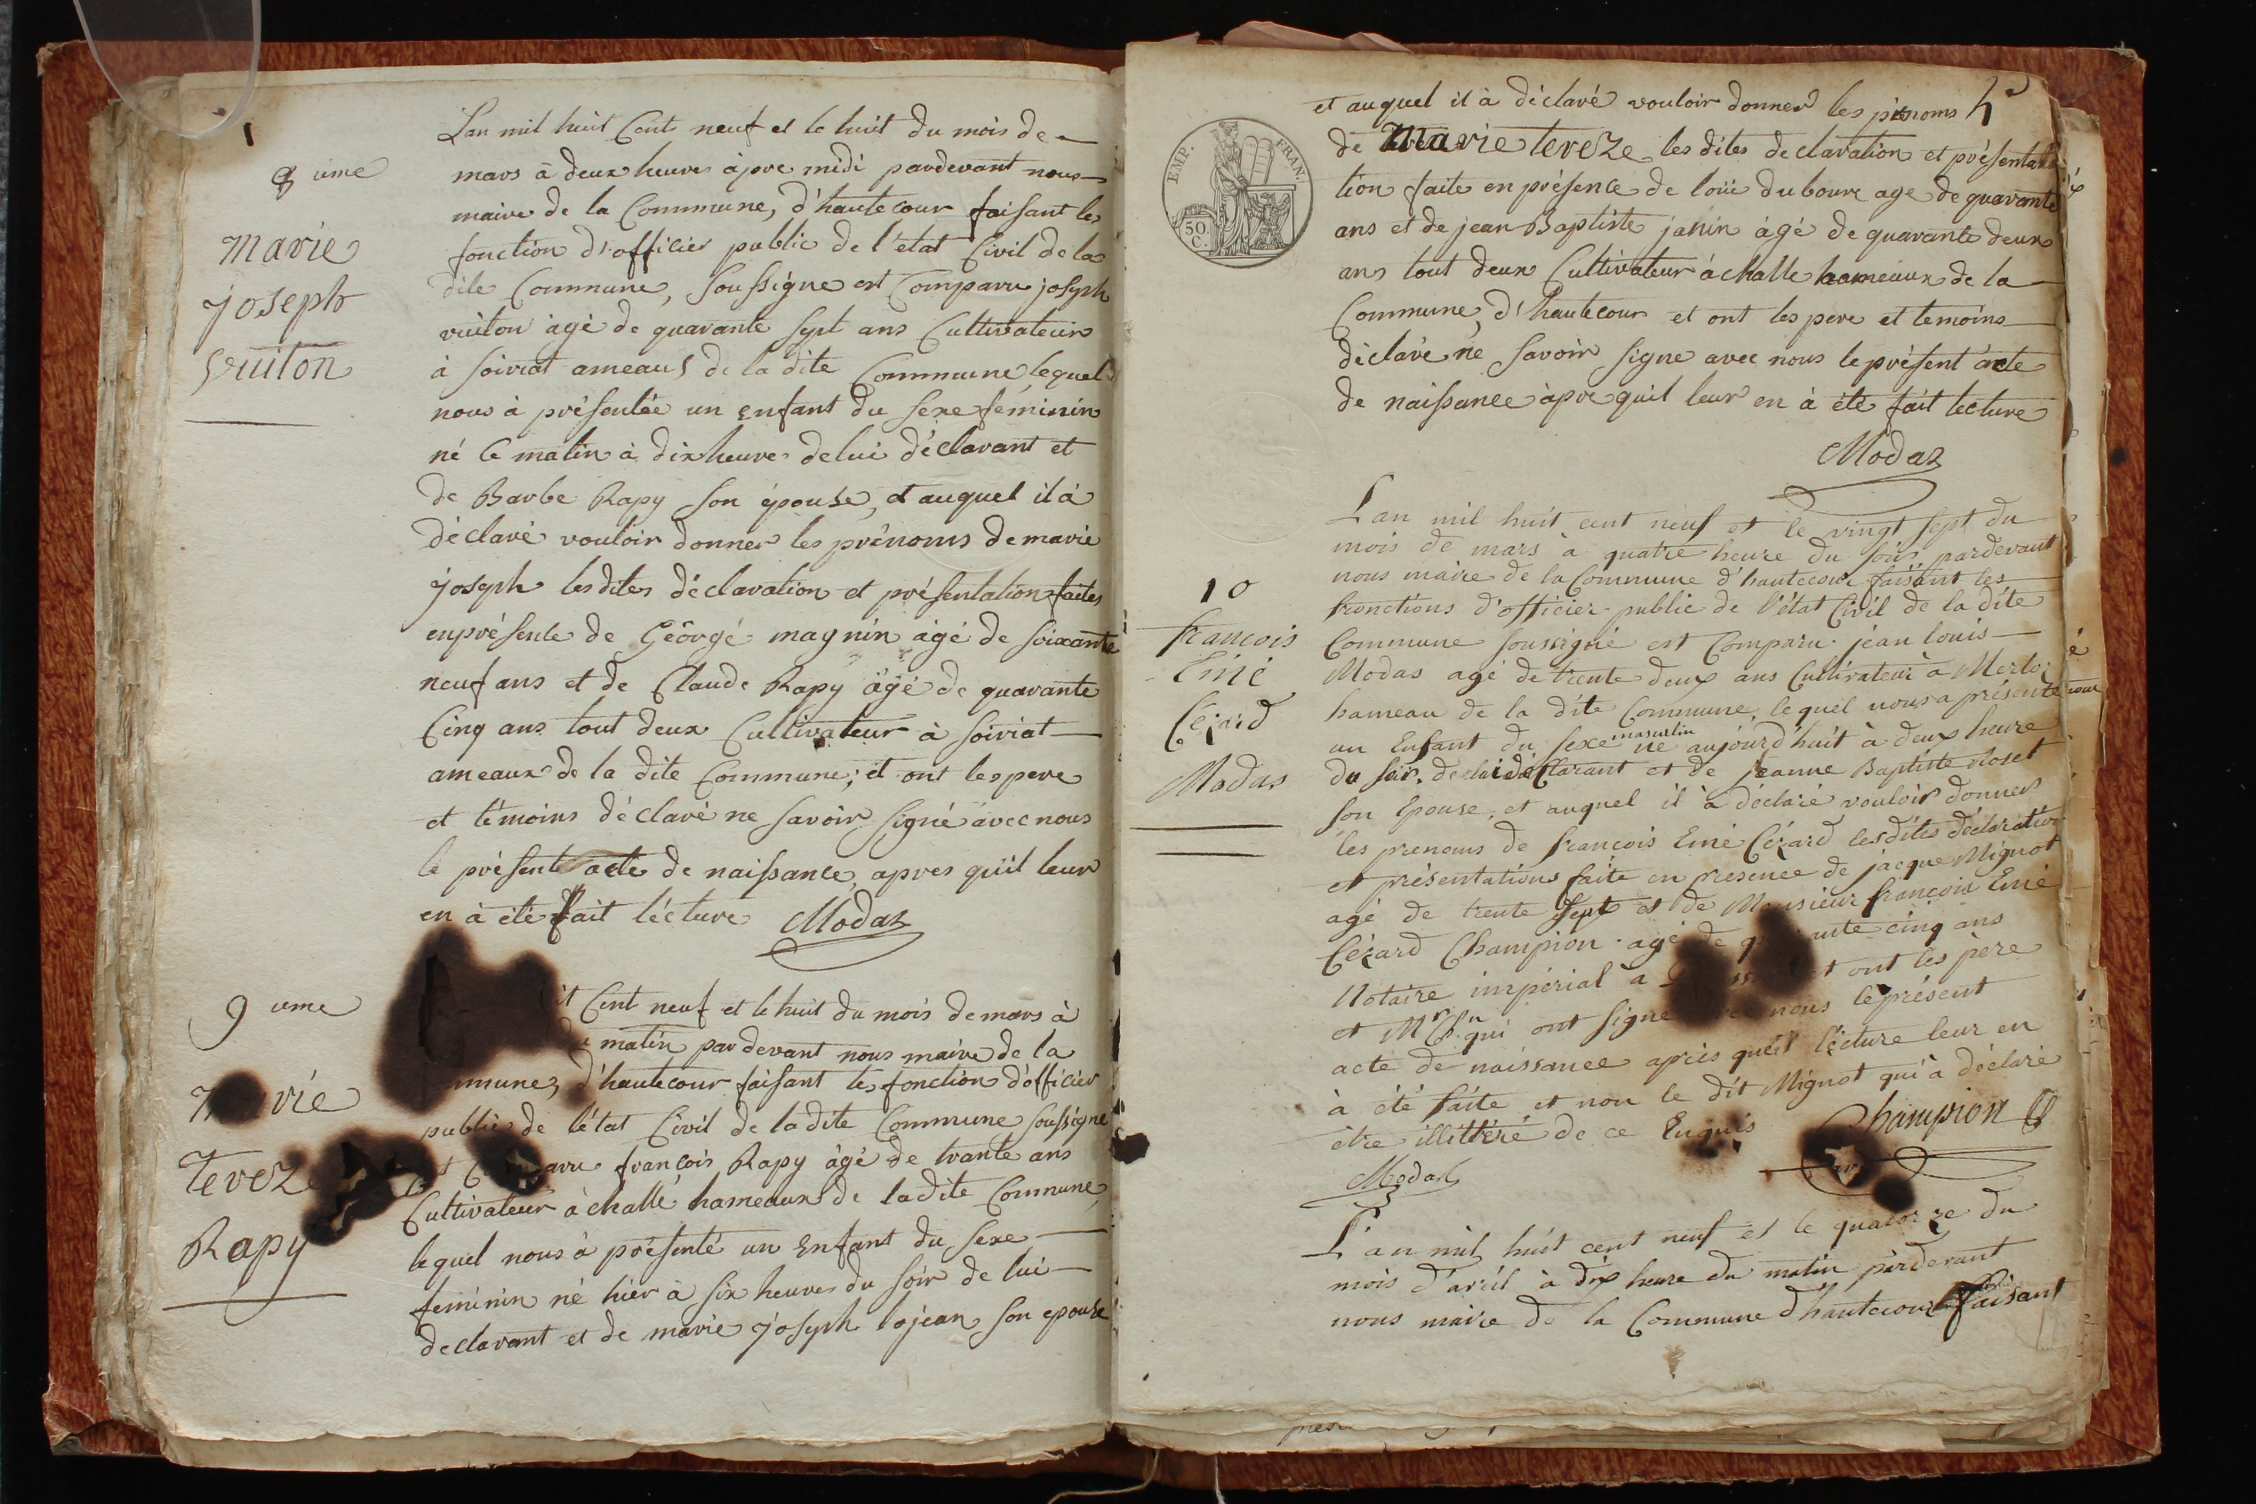 8 ieme
Marie
joseph
Vuiton
L'an mil huit Cent neuf et le huit du mois de
mars à deux heure àpre midi pardevant nous
maire de la Commune, d'hautecour faisant les
fonction d'officier public de l'etat Civil de la
dite Commune, Soussigne est Comparu joseph
vuiton àgé de quarante sept ans Cultivateur
à soiriat ameaus de la dite Commune lequel
nous à présentée un enfant du sexe feminin
né Ce matin à dix heure de lui déclarant et
de Barbe Rapy son épouse, et auquel il à
déclaré vouloir donner les prénoms de marie
joseph les dites déclaration et présentation faites
en présente de George magnin àgé de soixante
neuf ans et de Claude Rapy àgé de quarante
Cinq ans tout deux Cultivateur à soiriat
ameaux de la dite Commune; et ont les pere
et témoins déclaré ne savoir signé avec nous
le présente acte de naissance, apres quil leur
en à été fait lécture Modas
9 ieme
rie
terez
Rapy
it Cent neuf et le huit du mois de mars à
matin pardevant nous maire de la
mmune, d'hautecour faisant les fonction d'officier
public de létat Civil de la dite Commune soussigne
aru francois Rapy àgé de trante ans
Cultivateur à challe hameaux de la dite Commune,
lequel nous à présenté un enfant du sexe
feminin né hier à six heure du soir de lui
declarant et de marie joseph lojean son epouse
et auquel il à déclaré vouloir donner les prénoms
de Marie tereze les dites declaration et présenta
tion faite en présence de loüi dubourc age de quarante
ans et de jean Baptiste janin àgé de quarante deux
ans tout deux Cultivateur à challe hameaux de la
Commune, d'hautecour et ont les pere et temoins
déclaré ne savoir signe avec nous le présent acte
de naissance àpre quil leur en à été fait lecture
Modas
EMP. FRAN.
50 C.
10
francois
Emé
Cézard
Modas
L'an mil huit cent neuf et le vingt sept du
mois de mars à quatre heure du soir pardevant
nous maire de la Commune d'hautecour faisant les
fonctions d'officier public de l'état Civil de la dite
Commune soussigné est Comparu jean louis
Modas agé de trente deux ans Cultivateur à Merlo
hameau de la dite Commune, lequel nous a présenté
un Enfant du sexe masculin né aujourd'huit à deux heure
du soir de lui déclarant et de jeanne Baptiste Roset
son Epouse, et auquel il à déclaré vouloir donner
les prenoms de francois Emé Cézard les dites déclaration
et présentations faite en presence de jacque Mignot
agé de trente sept et de Monsieur francois Emé
Cézard Champion agé de cinq ans
Notaire impérial a et ont les père
et Mr Ch.n qui ont signe nous le présent
acte de naissance après quil lécture leur en
à été faite et non le dit Mignot qui à déclaré
être illitéré de ce Enquis Champion
Modas
L'an mil huit cent neuf et le quatorze du
mois d'avril à dix heure du matin pardevant
nous maire de la Commune d'hautecour faisant